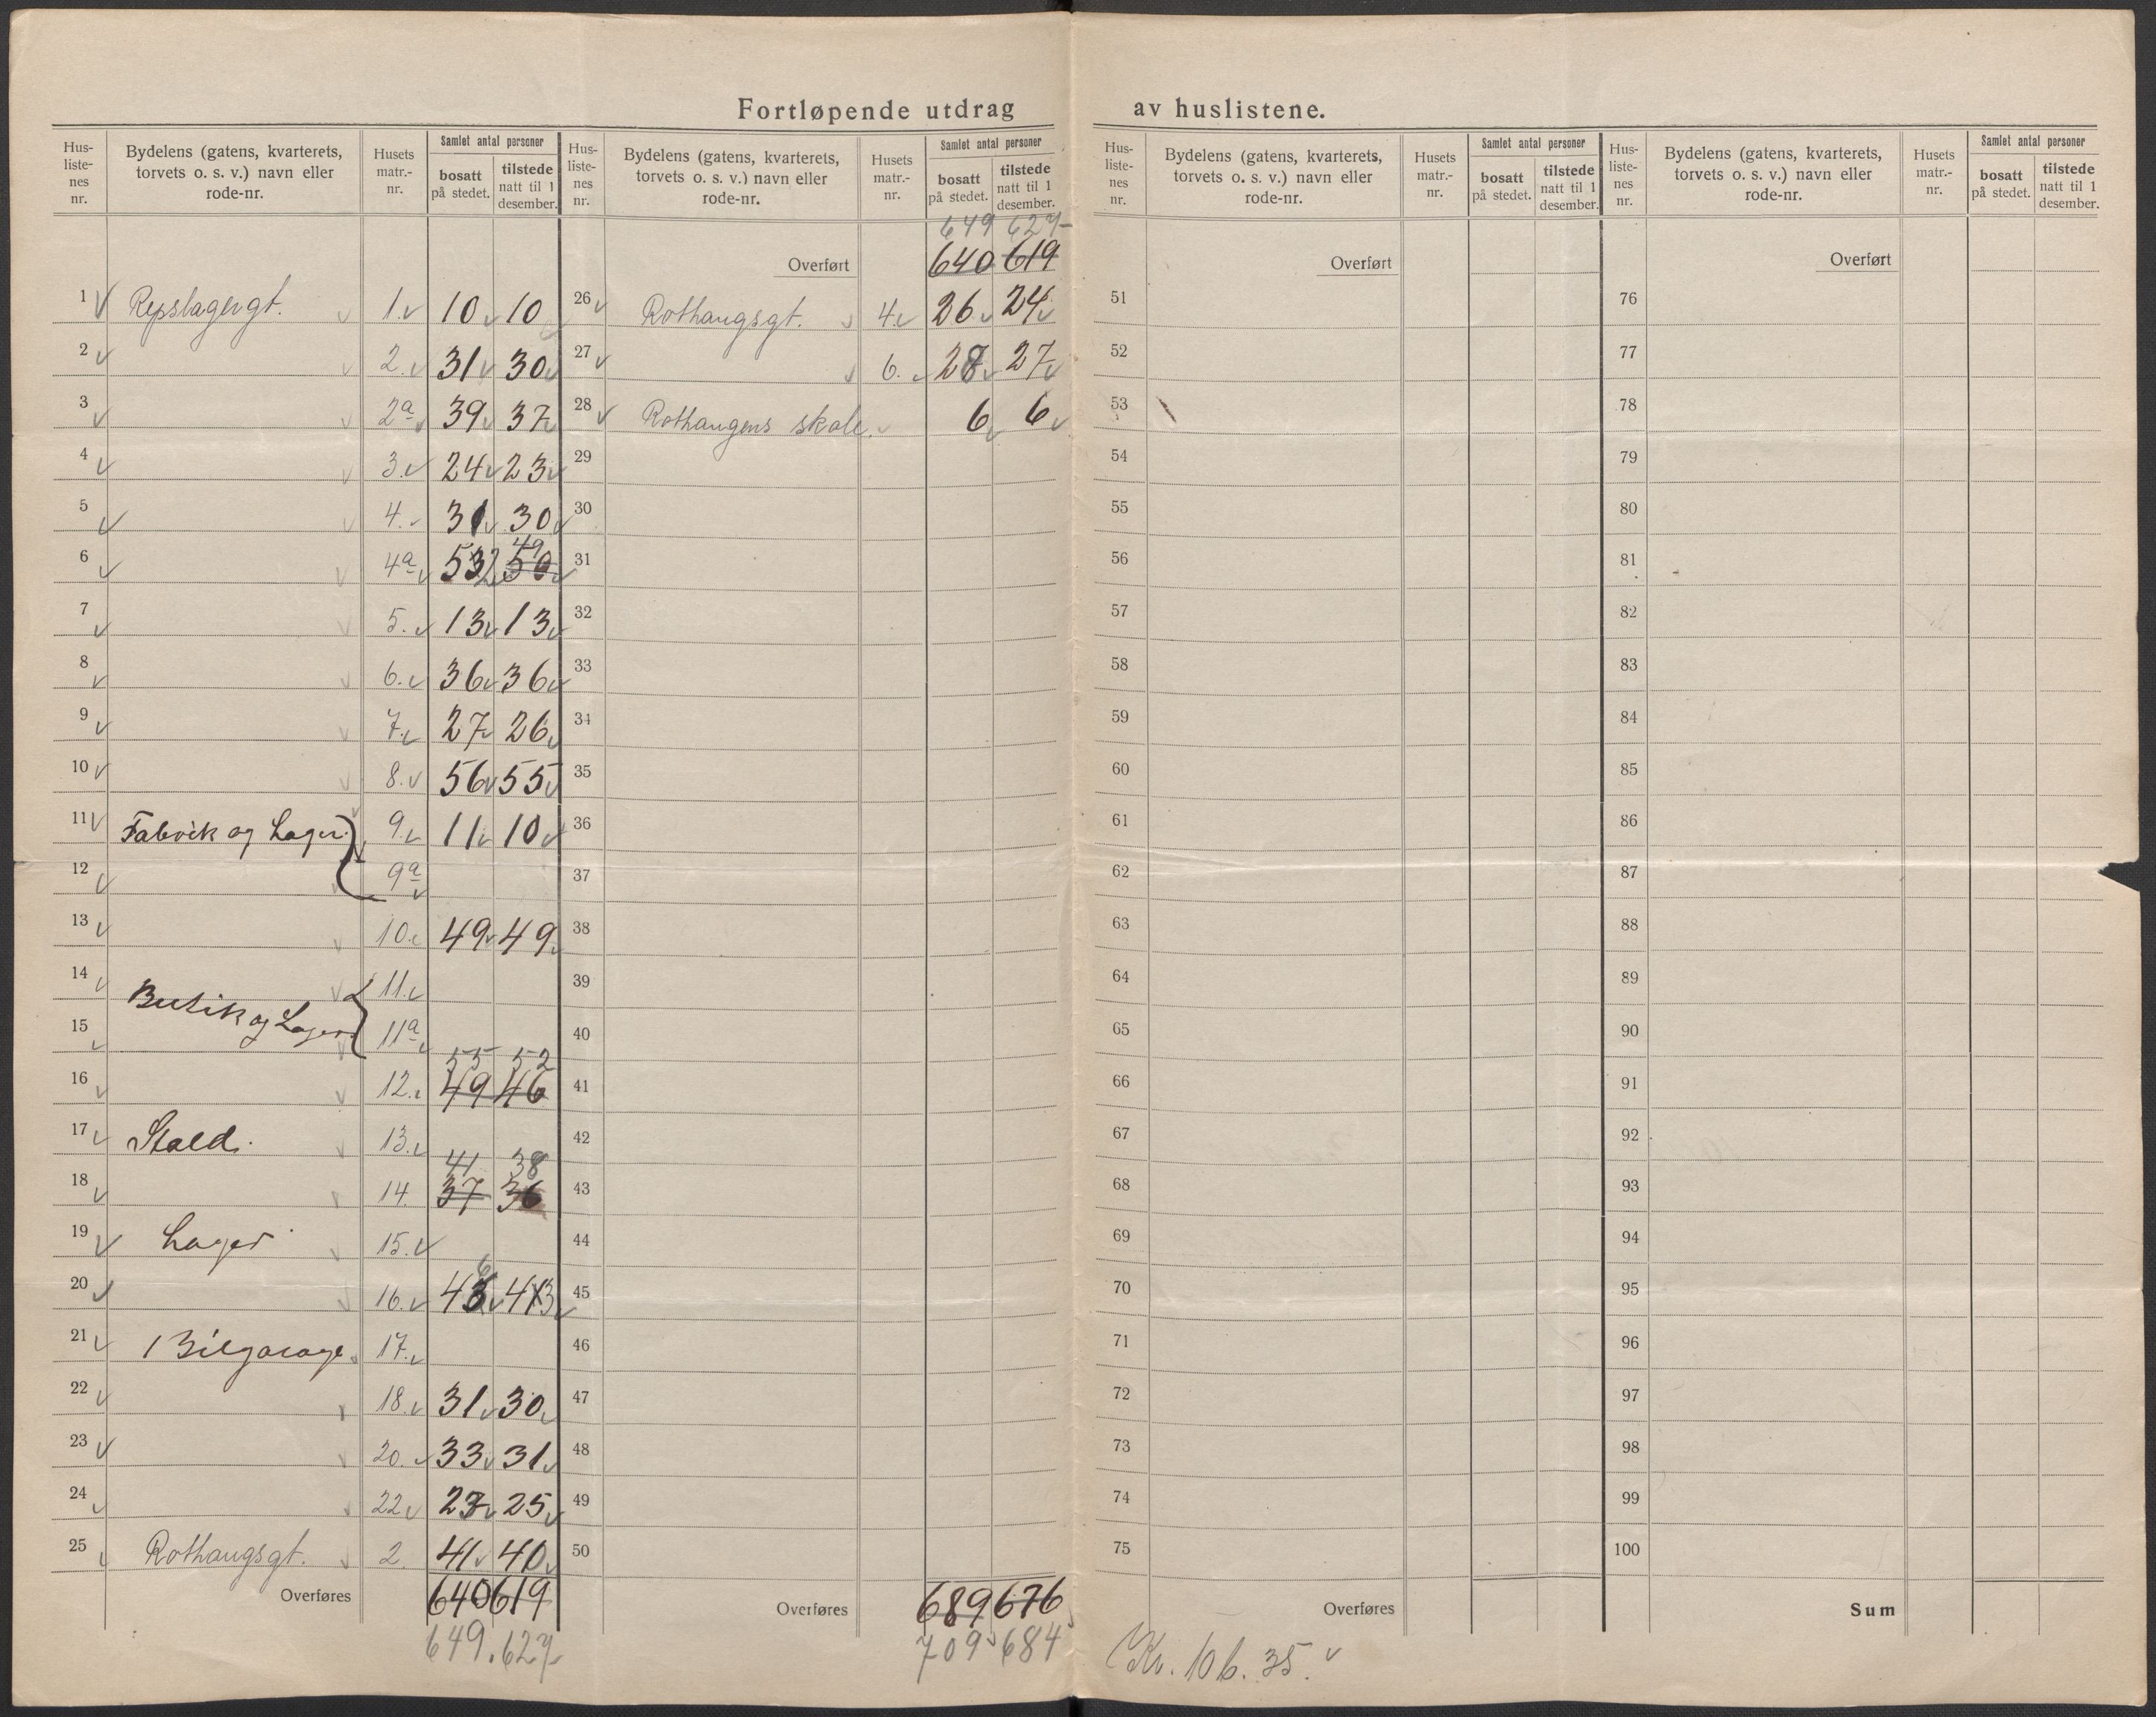 Fortløpende utdrag av huslistene.
Hus-listenes nr. Bydelens (gatens, kvarterets, torvets o. s. v.) navn eller rode-nr. Husets matr.-nr. Samlet antal personer bosatt på stedet. tilstede natt til 1 desember.
1 Repslagergt. 1. 10 10
2 2. 31 30
3 2a 39 37
4 3. 24 23
5 4. 31 30
6 4a 532 50 49
7 5. 13 13
8 6. 36 36
9 7. 27 26
10 8. 56 55
11 Fabrik og Lager. 9. 11 10
12 9a
13 10. 49 49
14 Butik og Lager 11.
15 11a
55 52
16 12. 49 46
17 Stald. 13.
41 38
18 14. 37 36
19 Lager 15.
20 16. 43 6 413
21 1 Bilgarage. 17.
22 18. 31 30
23 20. 33 31
24 22 27 25
25 Rothaugsgt. 2. 41 40
Overføres 640 619
649. 627
Hus-listenes nr. Bydelens (gatens, kvarterets, torvets o. s. v.) navn eller rode-nr. Husets matr.-nr. Samlet antal personer bosatt på stedet. tilstede natt til 1 desember.
649 627
Overført 640 619
26 Rothaugsgt. 4. 26 24
27 6. 28 27
28 Rothaugens skole. 6 6
29
30
31
32
33
34
35
36
37
38
39
40
41
42
43
44
45
46
47
48
49
50
Overføres 689 676
709 684
Hus-listenes nr. Bydelens (gatens, kvarterets, torvets o. s. v.) navn eller rode-nr. Husets matr.-nr. Samlet antal personer bosatt på stedet. tilstede natt til 1 desember.
Overført
51
52
53
54
55
56
57
58
59
60
61
62
63
64
65
66
67
68
69
70
71
72
73
74
75
Overføres
Kr. 10 b. 35.
Hus-listenes nr. Bydelens (gatens, kvarterets, torvets o. s. v.) navn eller rode-nr. Husets matr.-nr. Samlet antal personer bosatt på stedet. tilstede natt til 1 desember.
Overført
76
77
78
79
80
81
82
83
84
85
86
87
88
89
90
91
92
93
94
95
96
97
98
99
100
Sum